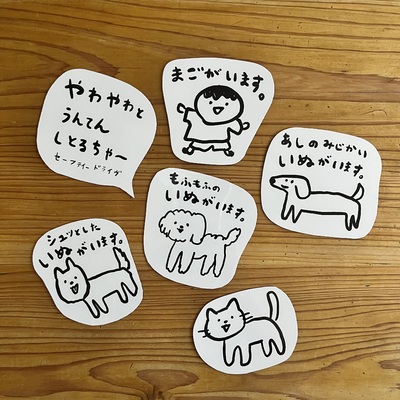 やわやわと
うんてん
しとるちゃ〜
セーフティードライブ
まごがいます。
あしのみじかい
いぬがいます。
もふもふの
いぬがいます。
シュッとした
いぬがいます。